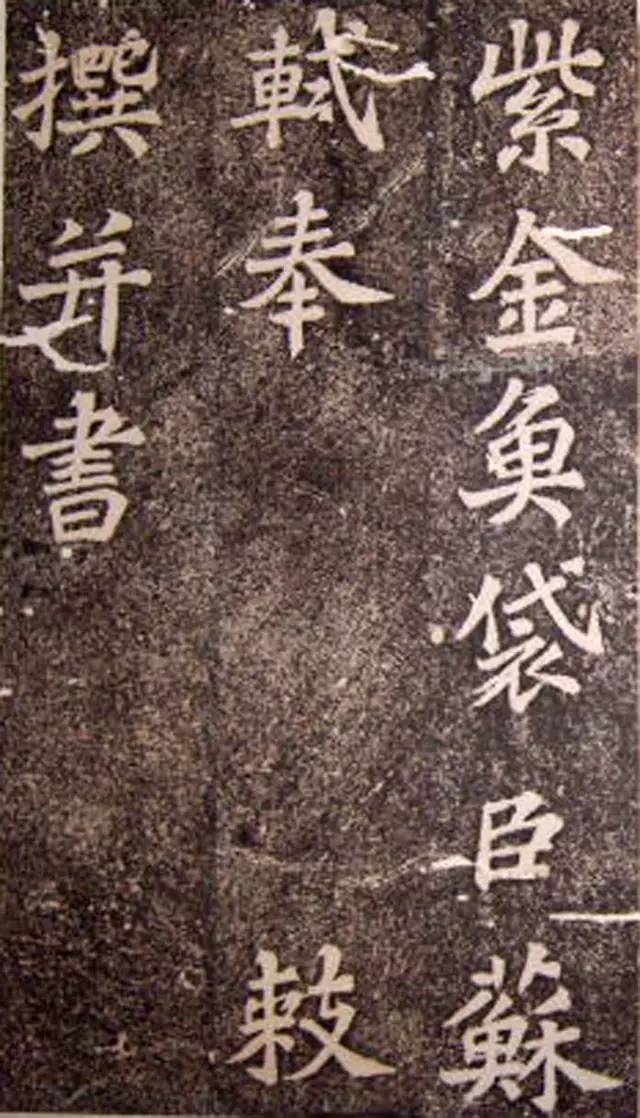 紫金魚袋臣蘇
軾奉敕
撰并書